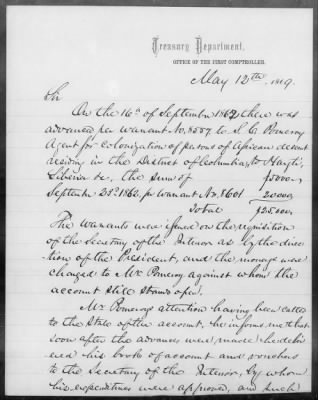 Treasury Department.
OFFICE OF THE FIRST COMPTROLLER.
May 12th, 1869.
Sir
On the 16th of September 1862 there was
advanced per warrant No. 8557 to S C Pomeroy
Agent for colonization of persons of African descent
residing in the District of Columbia, to Hayti,
Liberia &c, the sum of 5000,
September 25th 1862. per warrant No. 8601 20000
Total $25.000,
The warrants were issued on the requisition
of the Secretary of the Interior as by the direc
tion of the President, and the moneys were
charged to Mr Pomeroy against whom the
account still stands open.
Mr Pomeroy's attention having been called
to the state of the account, he informs me that
soon after the advances were made he deliv
ered his books of account and vouchers
to the Secretary of the Interior, by whom
his expenditures were approved, and such